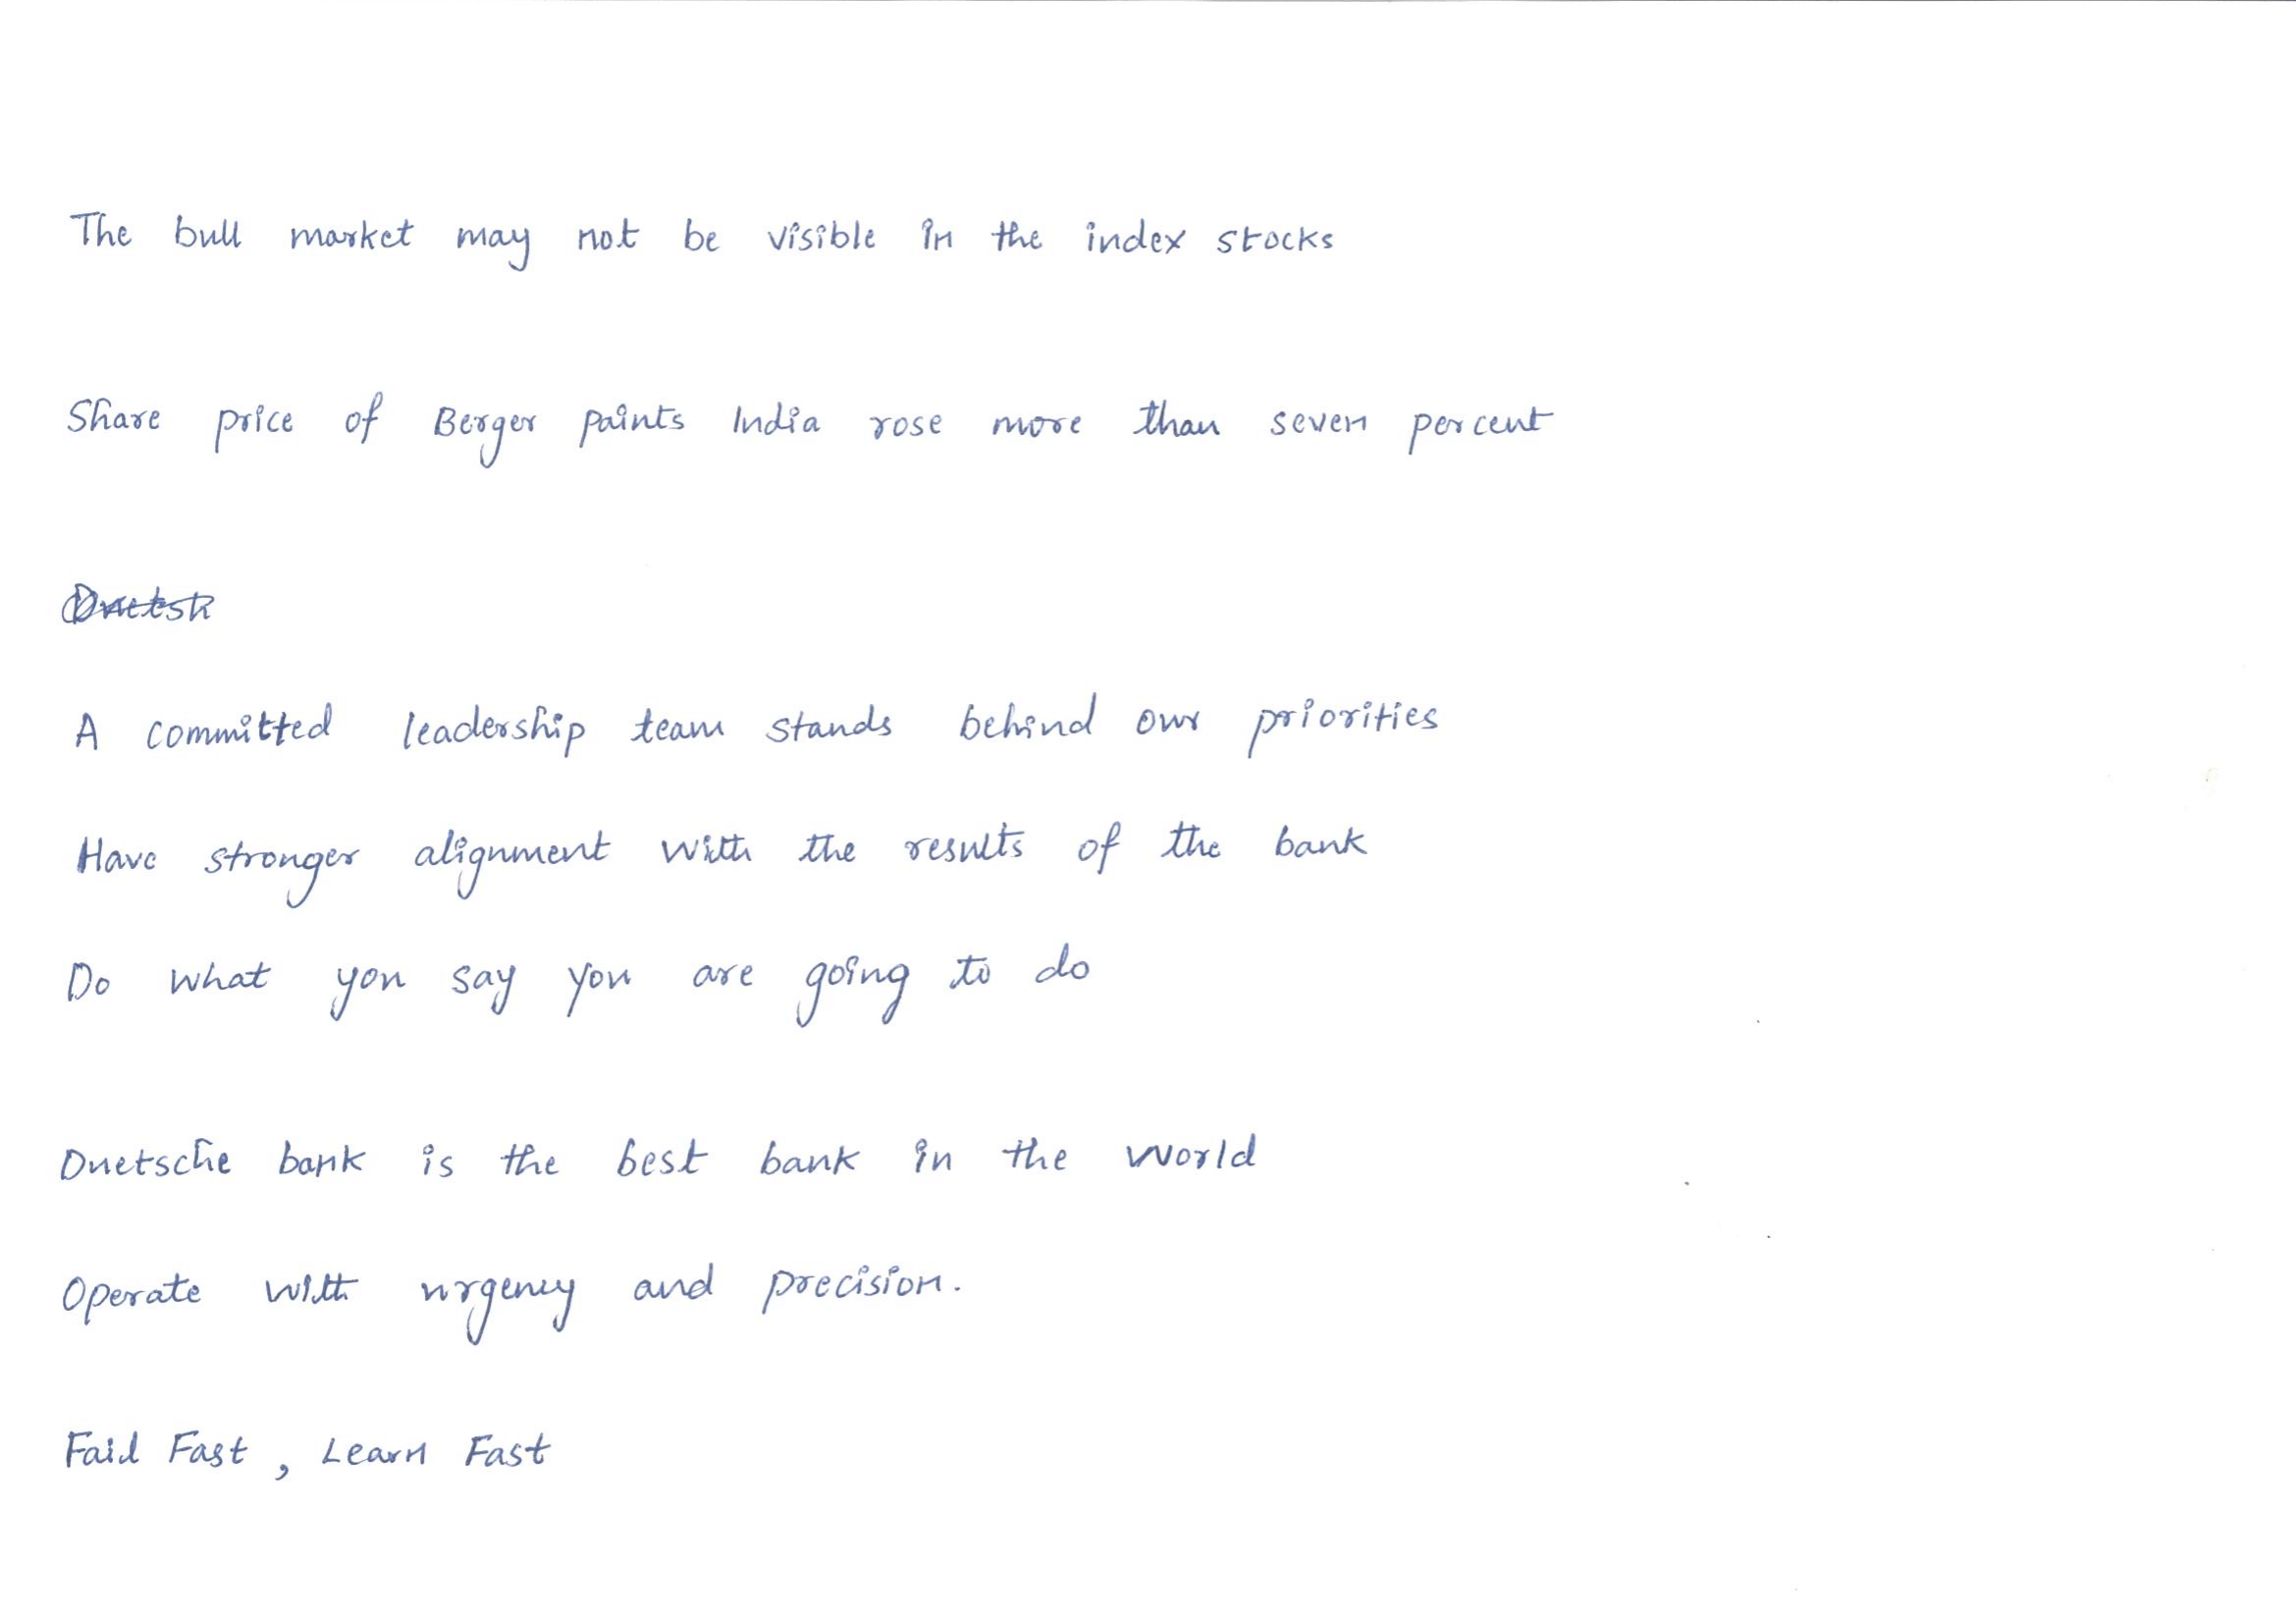 The bull market may not be visible in the index stocks
Share price of Berger paints India rose more than seven percent
A committed leadership team stands behind our priorities
Have stronger alignment with the results of the bank
Do what you say you are going to do
Duetsche bank is the best bank in the world
Operate with urgency and precision.
Faid Fast, Learn Fast